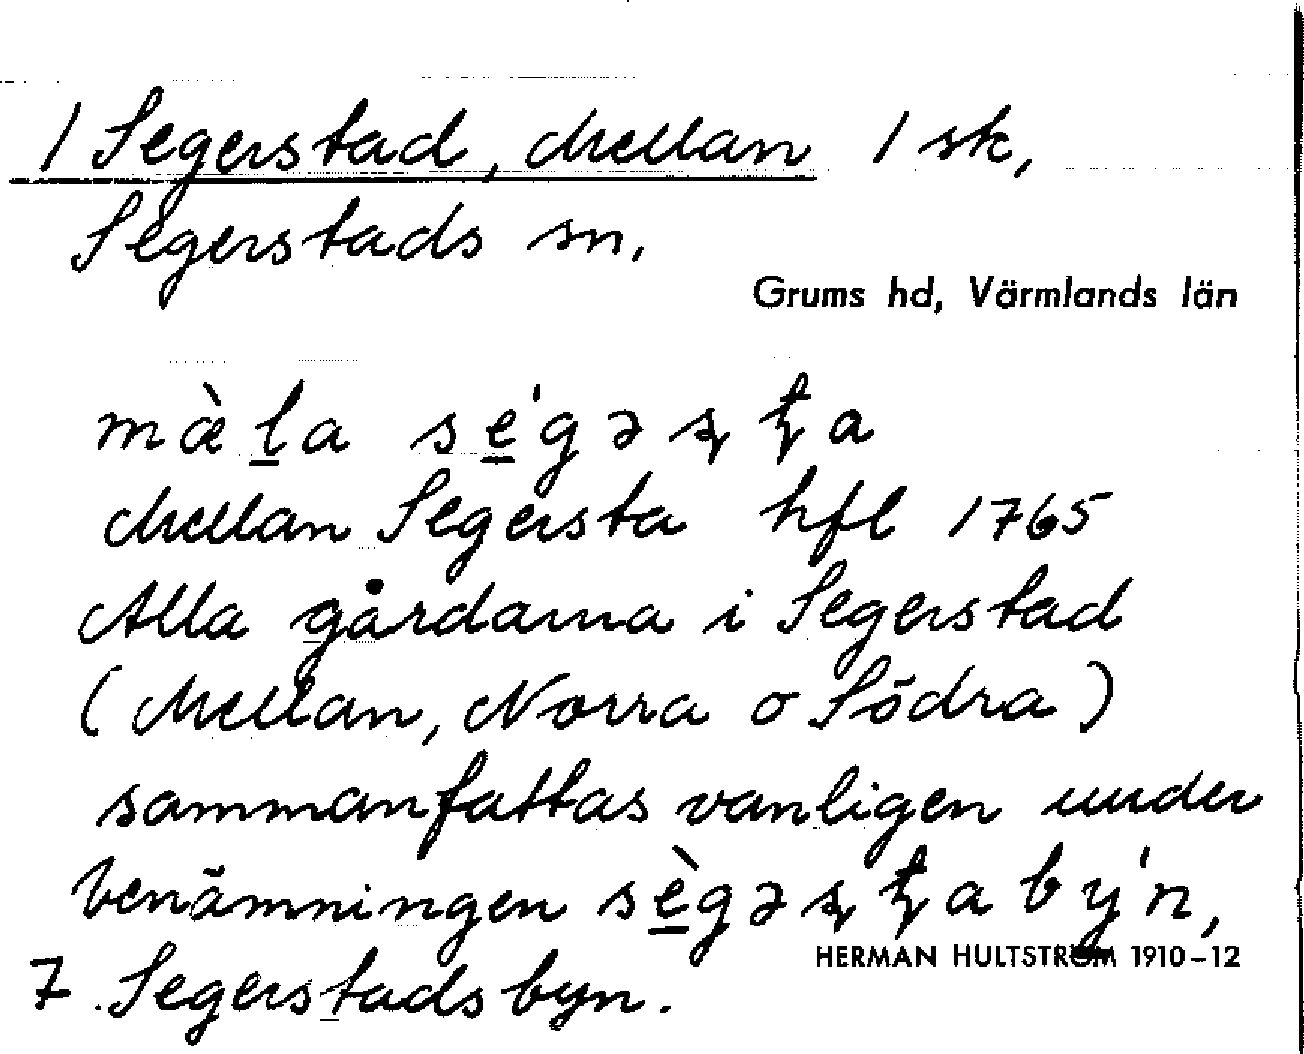 / Segerstad, Mellan / sk,
Segerstads sn.
Grums hd, Värmlands län
mæ̀l̲a sé̲gəʂʈa
Mellan Segersta hfl 1765
Alla gårdarna i Segerstad
(Mellan, Norra o Södra)
sammanfattas vanligen under
benämningen sè̲gəʂʈabýn,
HERMAN HULTSTRÖM 1910–12
7. Segerstadsbyn.